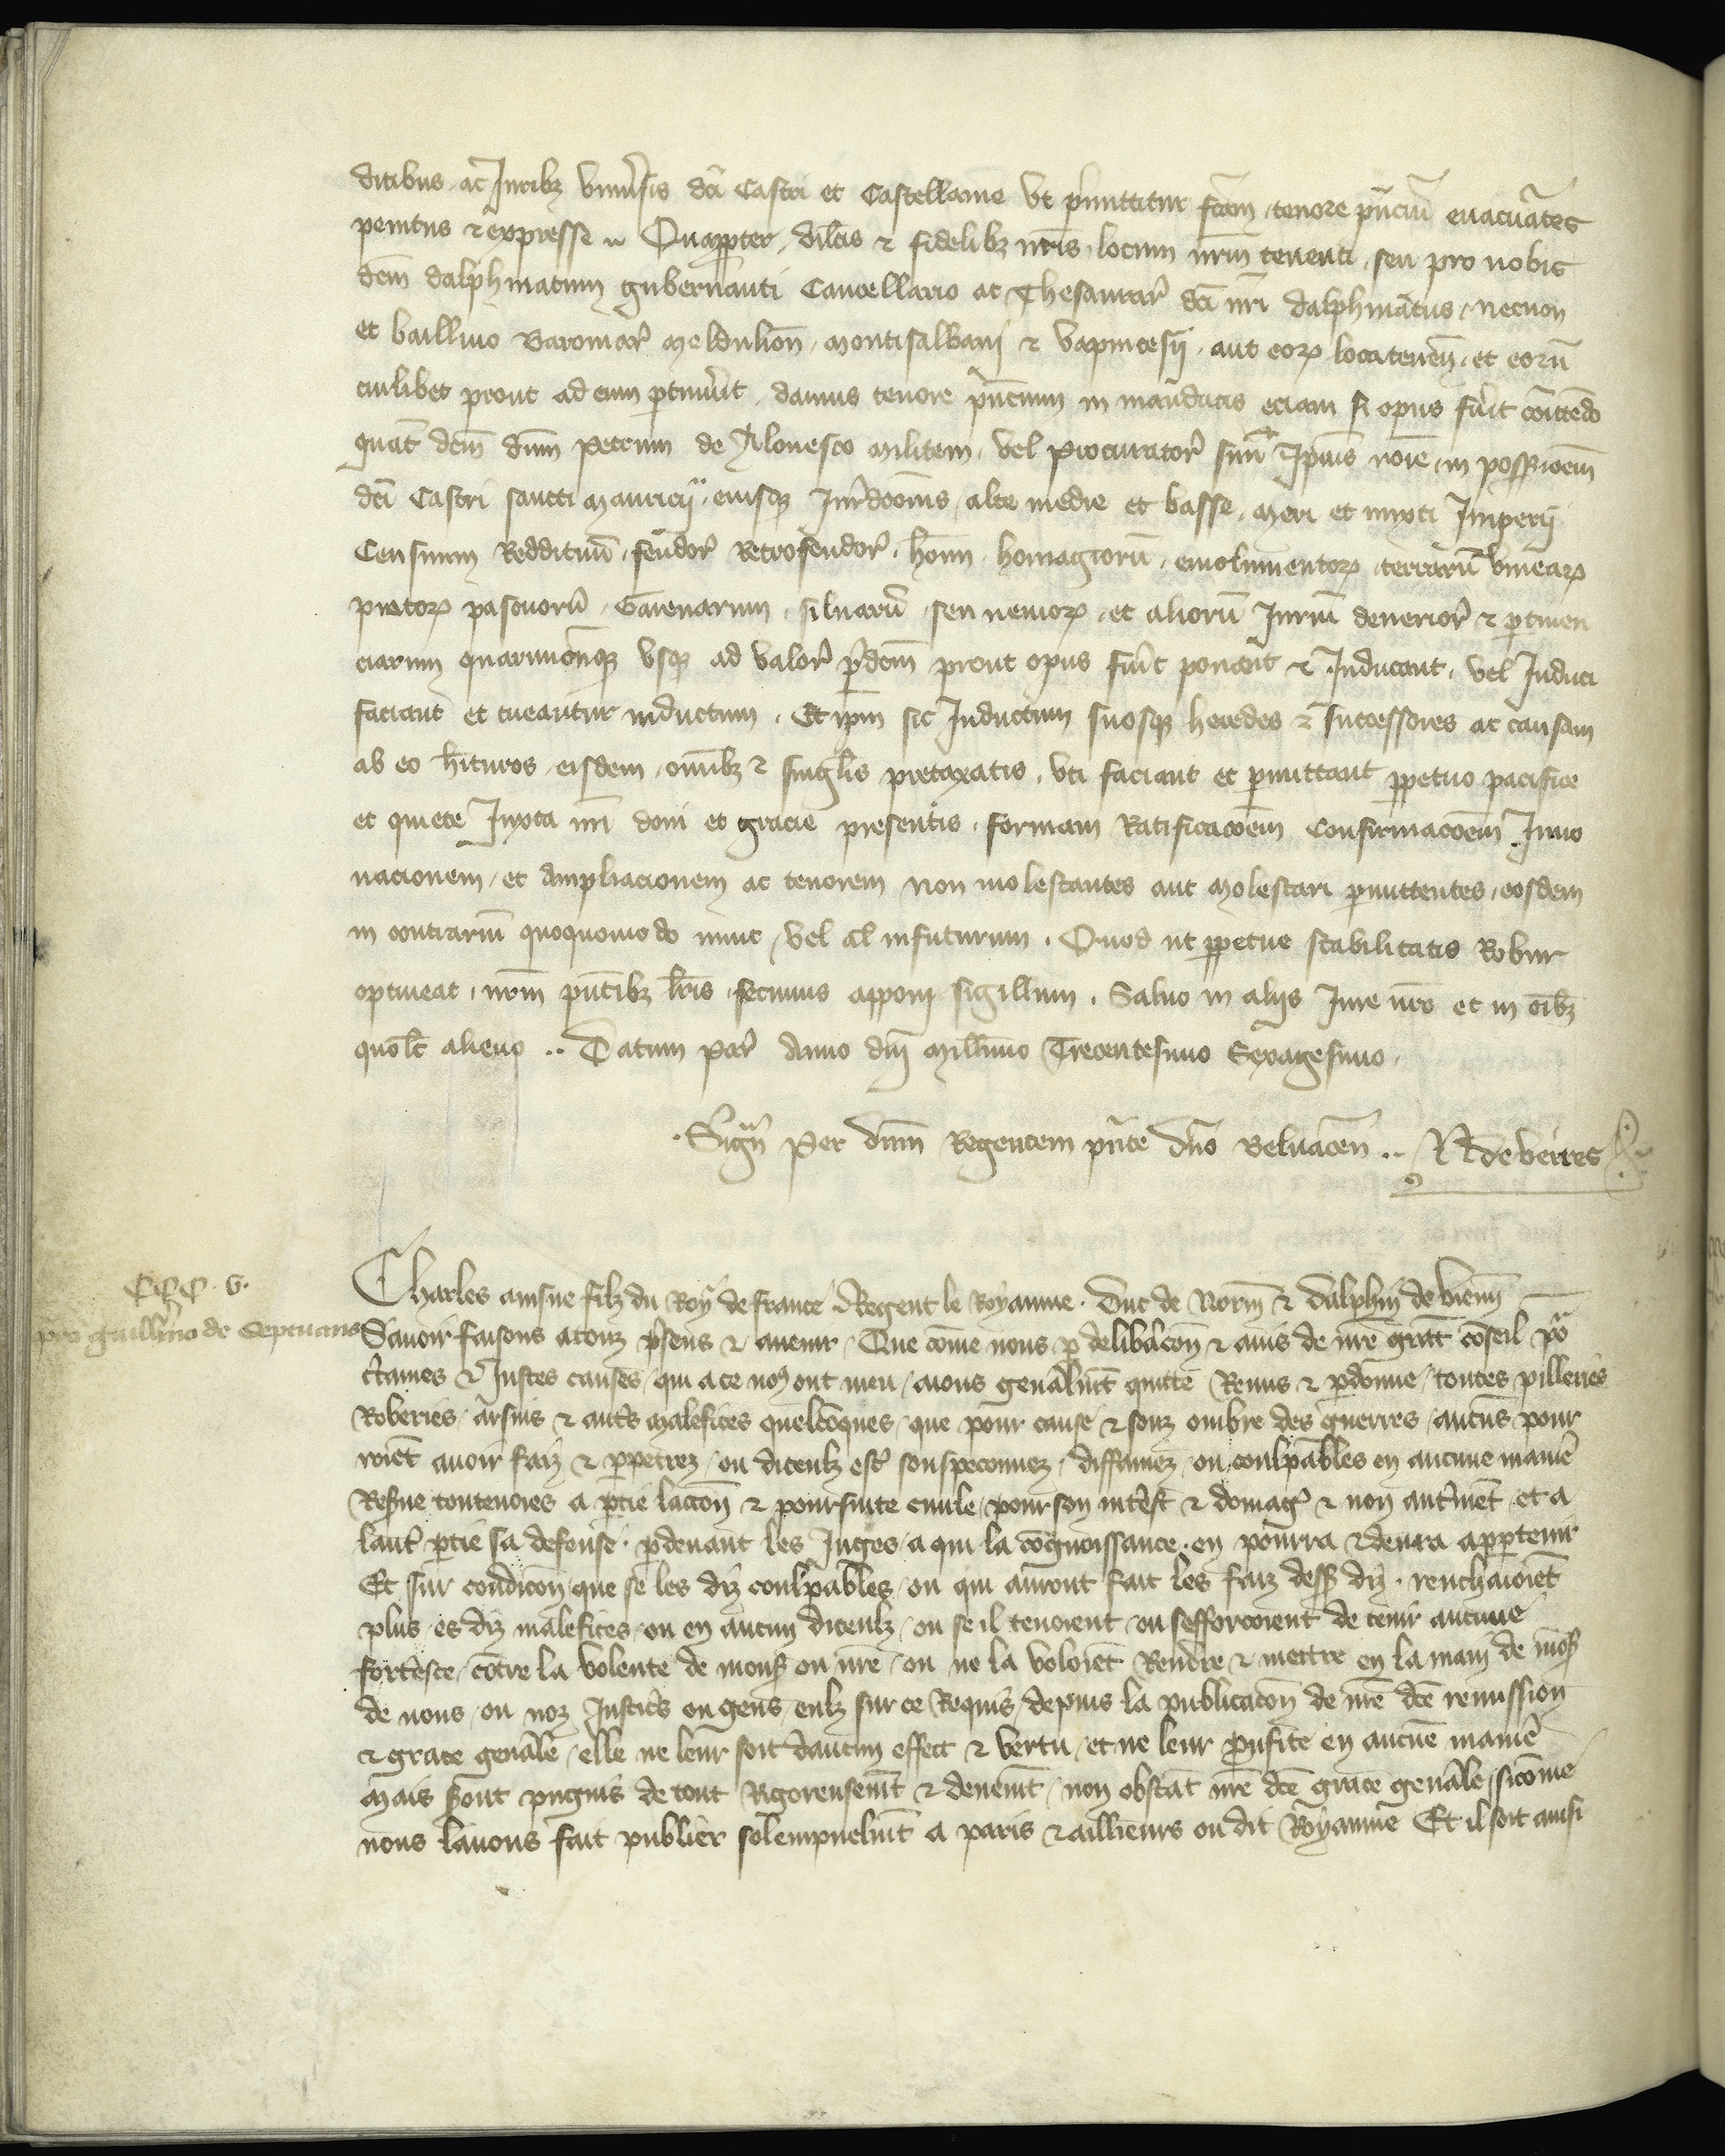 ditibus ac Juribz univ̾sis dc̃i Castri et Castellanie ut p̾mittitur fc̃am tenore pñciũ evacuãtes
penitus ⁊ expresse .. Quapp̱ter dilc̃is ⁊ fidelibz nr̃is locum nr̃m tenenti seu pro nobis
dcm̃ dalphinatum gubernanti Cancellario ac Thesaurar̾ dc̃i nr̃i dalphinatus necnon
et baillivo Baroniar̾ Medulion̄ Montisalbani ⁊ Vapincesij aut eoꝝ locatenen̄ et eorũ
cuilibet prout ad eum ꝑtinu̾it damus tenore pñcium in mandatis eciam si opus fu̾it com̄ittẽdo
quat̾ dcm̃ dñm Petrum de Alonesco militem vel Procurator̾ suũ ipius noĩe in possessioem̃
dc̃i Castri sancti Mauricij eiusqꝫ Jur̾dcõnis alte medie et basse meri et mixti Imperij
Censuum Reddituũ feudor̾ Retrofeudor̾ hom̃m homagiorũ emolumentoꝝ terrarũ vineaꝝ
pratoꝝ pascuorũ Garenarum silvarũ seu nemoꝝ et aliorũ Juriũ deverior̾ ⁊ ꝑtinen
ciarum quarumcũqꝫ usqꝫ ad valor̾ p̾dcm̃ prout opus fu̾it ponant ⁊ Inducant vel Induci
faciant et tueantur inductum . Et ip̃m sic Inductum suosqꝫ heredes ⁊ successores ac causam
ab eo hĩturos eisdem om̃ibz ⁊ singl̃is pretaxatis uti faciant et ꝑmittant ꝑpetuo pacifice
et quiete Juxta nr̃i doni et gracie presentis formam Ratificacõem Confirmacõem Inno
vacionem et Ampliacionem ac tenorem non molestantes aut molestari ꝑmittentes eosdem
in contrarium quoquomodo nunc vel al̾ infuturum . Quod ut ꝑpetue stabilitatis Robur
optineat nr̃m pñtibz lr̃is fecimus apponi sigillum . Salvo in alijs Jure nr̃o et in oĩbz
quol̾t alieno .. Datum Par̾ Anno dñi Millĩmo Trecentesimo Sexagesimo .
Sign̄ Per dñm Regentem pñte dño Belvacen̄ .. N de Veirres
Charles ainsne filz du Roy de france Regent le Royaume . Duc de Norm̃ ⁊ dalphin de vienn̄
CCCC . V.
pro guill̾mo de Septuans
Savoir faisons a touz p̾sens ⁊ avenir Que cõme nous p̱ delibãcon̄ ⁊ avis de nr̃e grãt cõseil po̾
c̾taines ⁊ Justes causes qui a ce nos ont meu aions genãlmt̄ quitte Remis ⁊ ꝑdonne toutes pilleries
Roberies arsins ⁊ autr̾s malefices quelcõques que pour cause ⁊ souz ombre des guerres aucũs pour
roiẽt avoir faiz ⁊ ꝑpetrez ou diceulz est̾ souspeconnez diffamez ou coulpables en aucune manie̾
Res̾ve toutevoies a ꝑtie laccon̄ ⁊ poursuite civile pour son int̾est ⁊ domag̾ ⁊ non autr̾mẽt et a
laut̾ ꝑtie sa defense ꝑdevant les Juges a qui la cõgnoissance en pourra ⁊ devra apꝑtenir
Et sur condicon̄ que se les diz coulpables ou qui auront fait les faiz dess̾ diz renchaioiẽt
plus es diz malefices ou en aucun diceulz ou se il tenoient ou sefforcoient de tenir aucune
fort̾esce cõtre la volente de mons̾ ou nr̃e ou ne la voloiẽt Rendre ⁊ mettre en la main de mõs̾
de nous ou noz Justic̾s ou gens eulz sur ce Requis depuis la publicacõn de nr̃e dc̃e remission
⁊ grace genãle elle ne leur soit daucun effect ⁊ vertu et ne leur proufite en aucũe manie̾
Mais s̾ont pugnis de tout Rigoreusemt̄ ⁊ deuemt̄ non obstãt nr̃e dc̃e grace genãle sicõme
nous lavons fait publier solempnelmt̄ a paris ⁊ ailleurs ou dit Royaume Et il soit ainsi